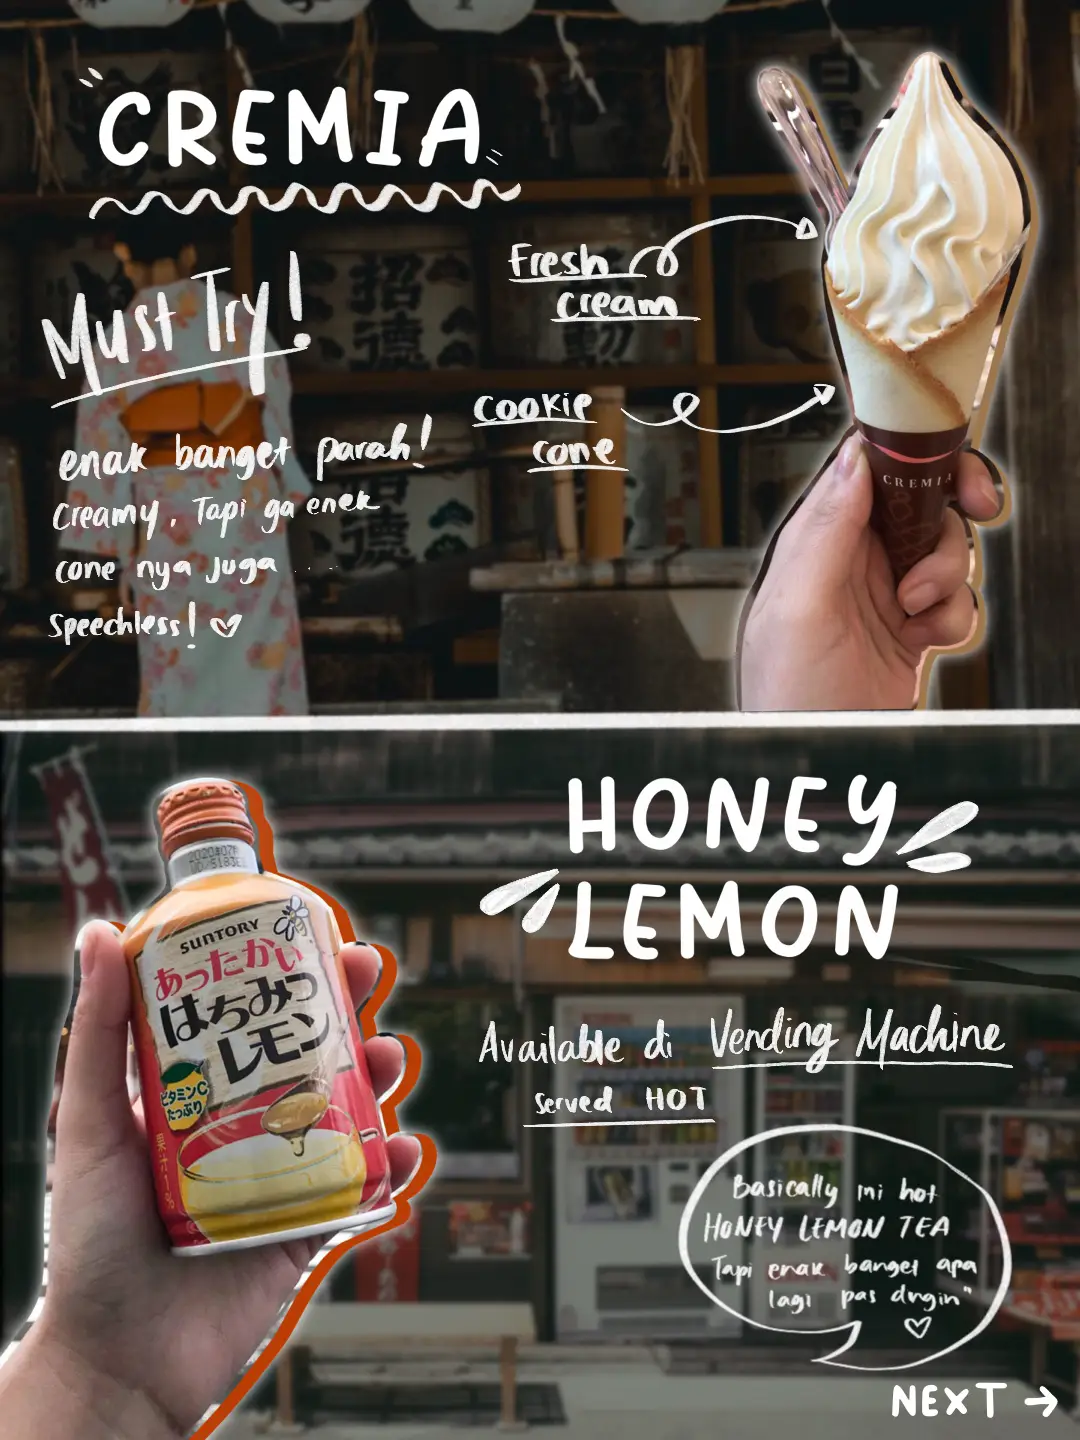 CREMIA
Must Try!
enak banget parah!
Creamy, Tapi ga enek
cone nya juga ....
speechless!
Fresh
cream
Cookie
cone
CREMIA
招
德
德
HONEY
LEMON
Available di Vending Machine
served HOT
Basically ini hot
HONEY LEMON TEA
Tapi enak banget apa
lagi pas dngin"
SUNTORY
あったかい
はちみつ
レモン
ビタミンC
たっぷり
果汁1%
NEXT →